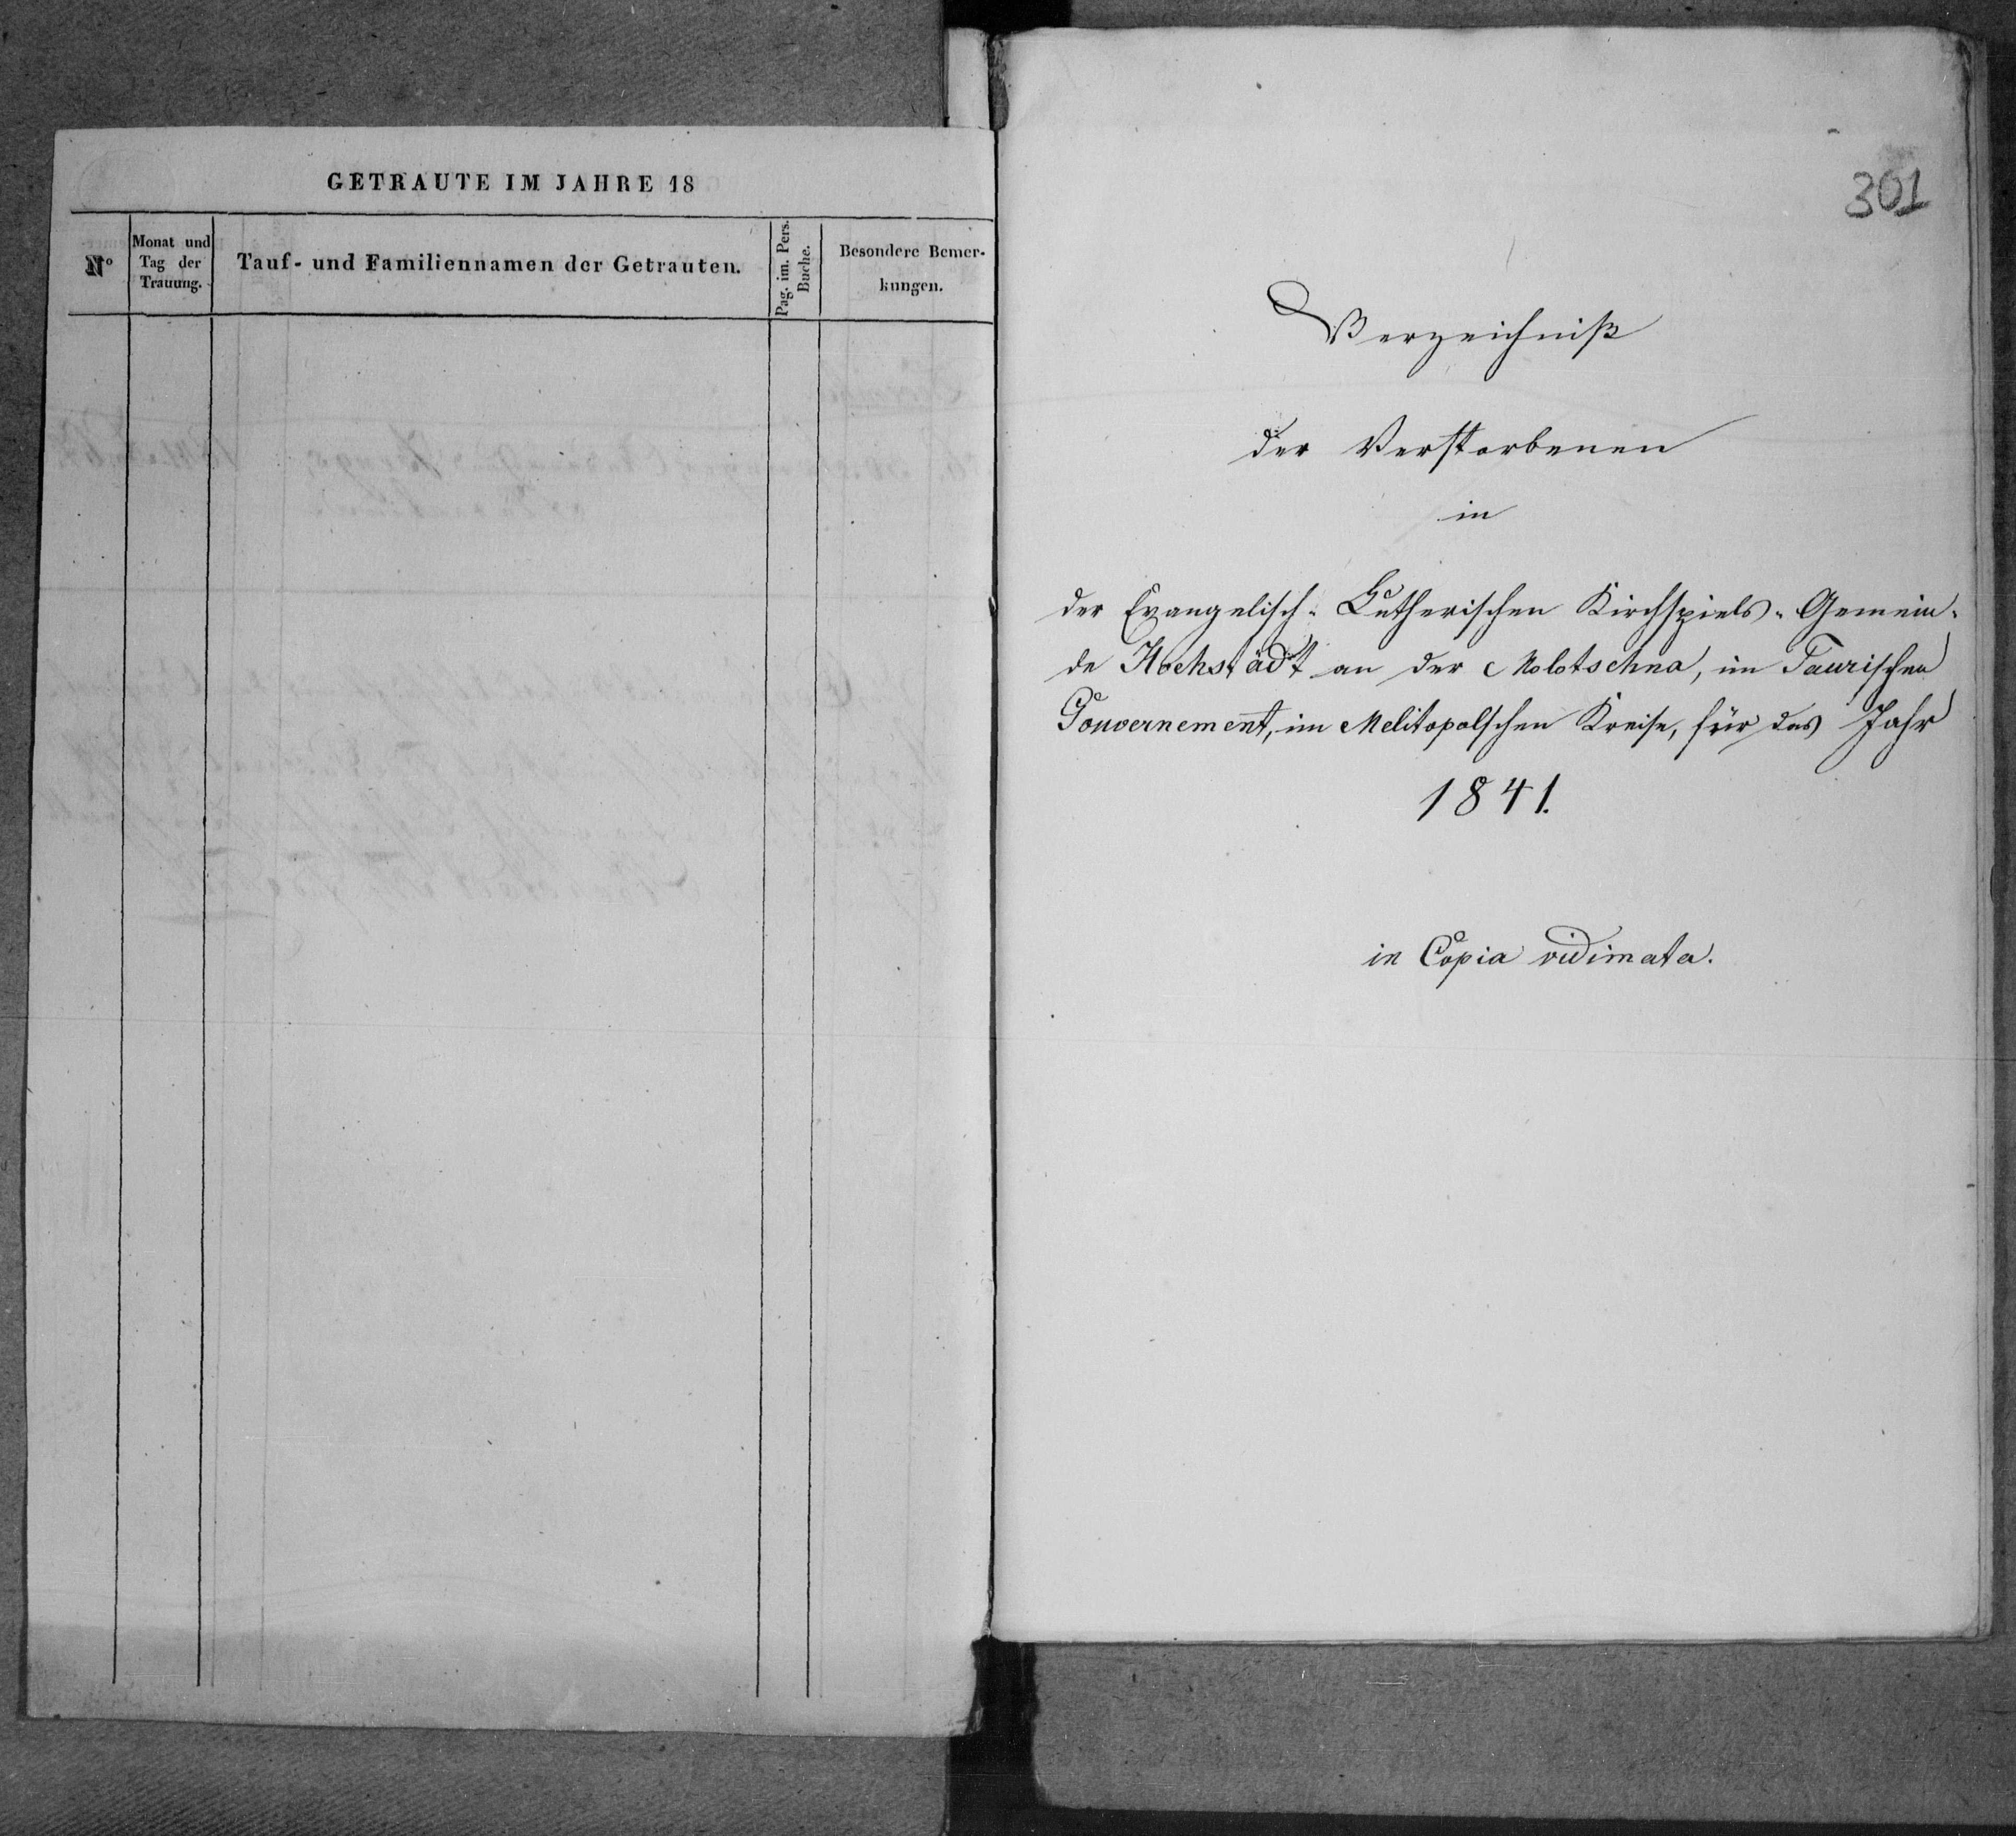 GETRAUTE IM JAHRE 18
N° Monat und Tag der Trauung. Tauf- und Familiennamen der Getrauten. Pag. im. Pers. Buche. Besondere Bemer-kungen.
301
Verzeichniß
der Verstorbenen
in
der Evangelisch-Lutherischen Kirchspiels-Gemein-
de Hochstädt an der Molotschna, im Taurischen
Gouvernement, im Melitopolschen Kreise, für das Jahr
1841.
in Copia vidimata.